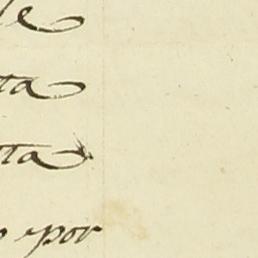 le
ta
ta
o por